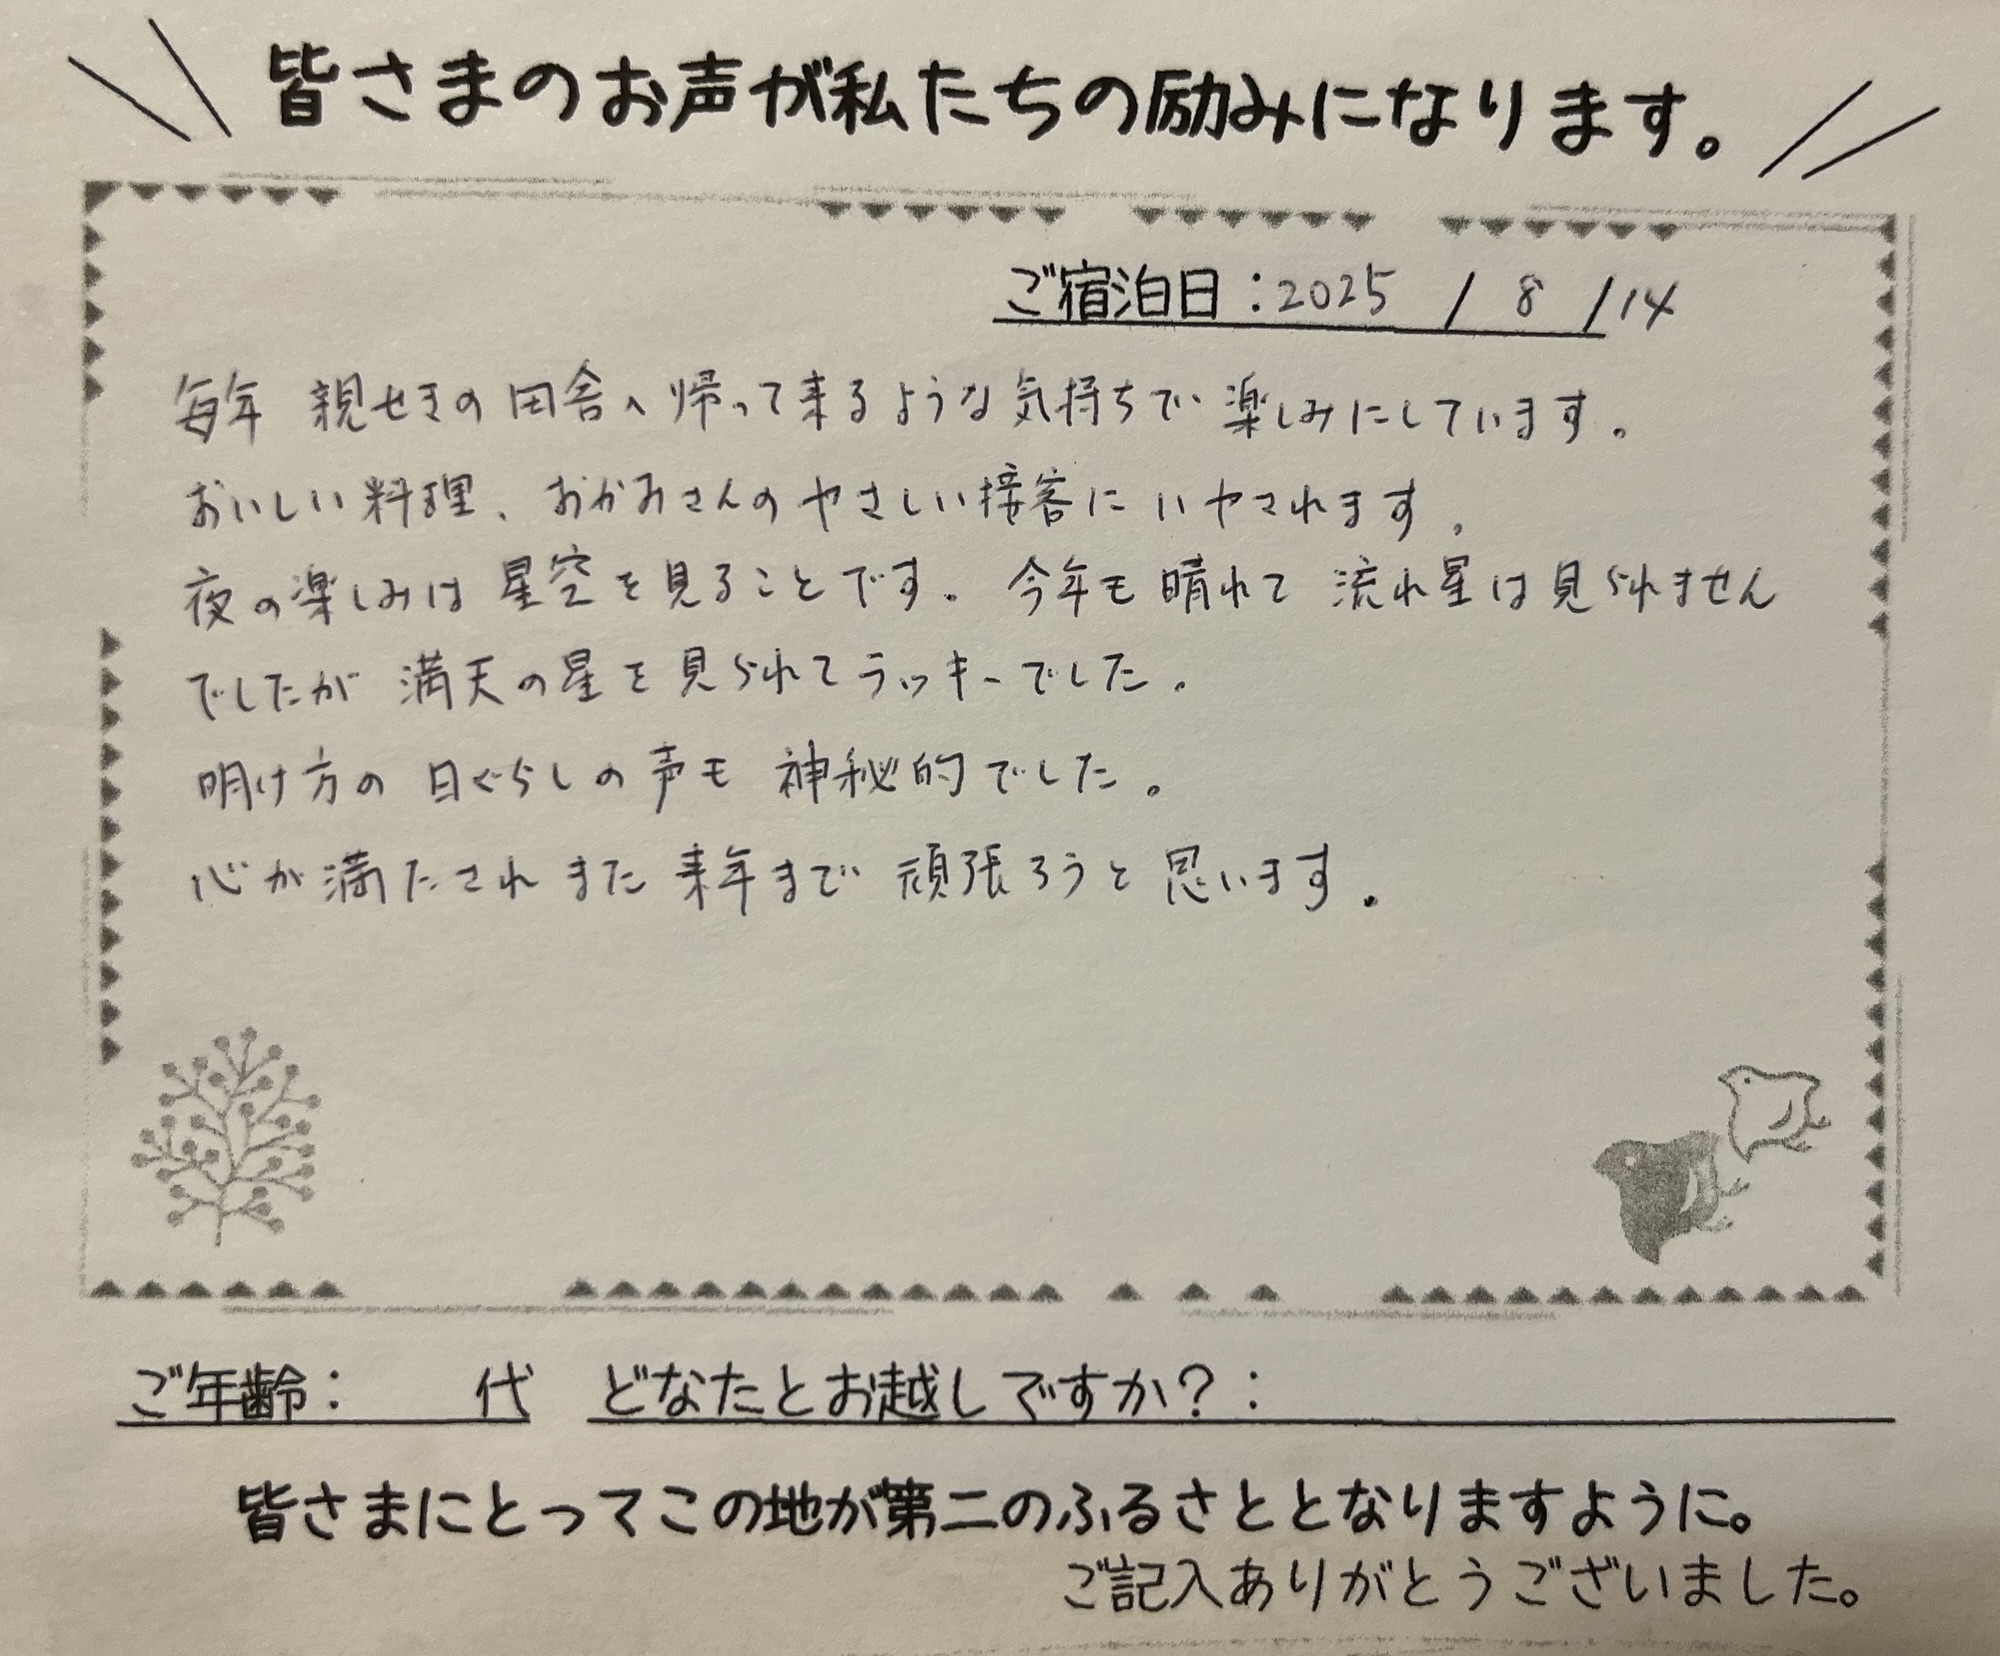 皆さまのお声が私たちの励みになります。
ご宿泊日：2025 / 8 / 14
毎年 親せきの田舎へ帰って来るような気持ちで楽しみにしています。
おいしい料理、おかみさんのやさしい接客にいやされます。
夜の楽しみは星空を見ることです。今年も晴れて流れ星は見られません
でしたが満天の星を見られてラッキーでした。
明け方の日ぐらしの声も神秘的でした。
心が満たされまた来年まで頑張ろうと思います。
ご年齢： 代 どなたとお越しですか？：
皆さまにとってこの地が第二のふるさととなりますように。
ご記入ありがとうございました。